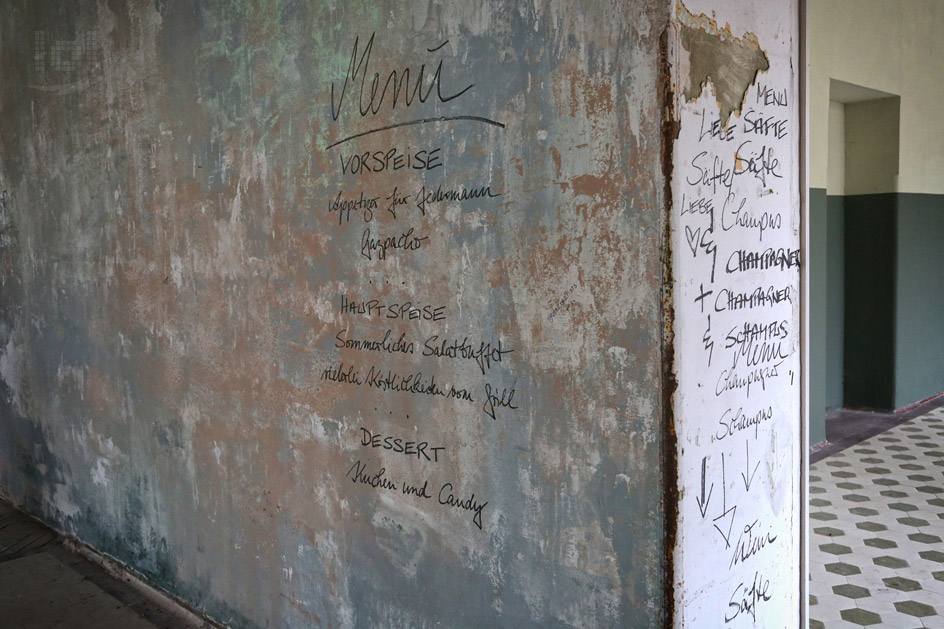 Menü
VORSPEISE
Appetizer für Jedermann
Gazpacho
. . .
HAUPTSPEISE
Sommerliches Salatbuffet
vielerlei Köstlichkeiten vom Grill
. . .
DESSERT
Kuchen und Candy
MENU
LIEBE SÄFTE
Säfte Säfte
LIEBE Champus
CHAMPAGNER
+ CHAMPAGNER
SCHAMPUS
Menü
Champagner
Schampus
Säfte